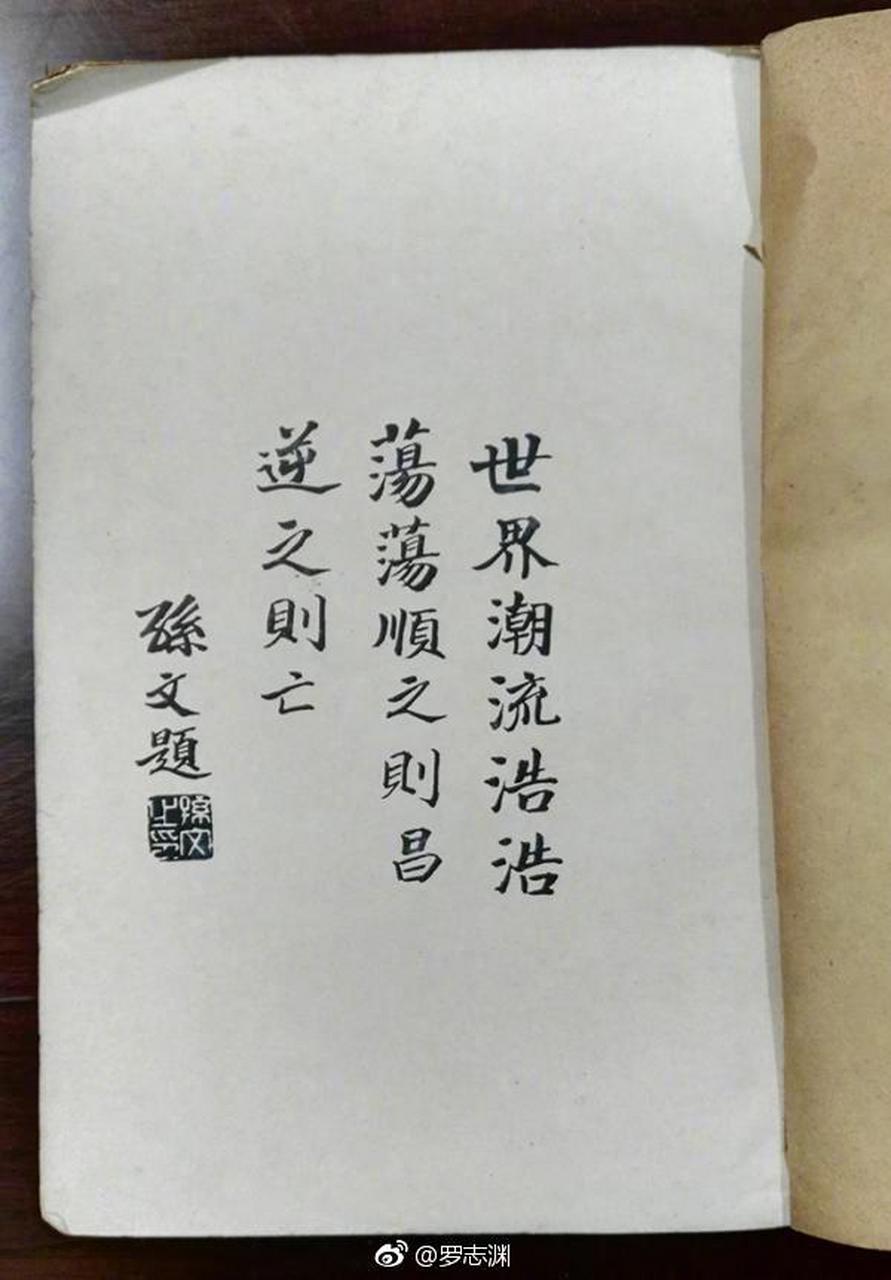 世界潮流浩浩
蕩蕩順之則昌
逆之則亡
孫文題
孫文之印
@罗志渊